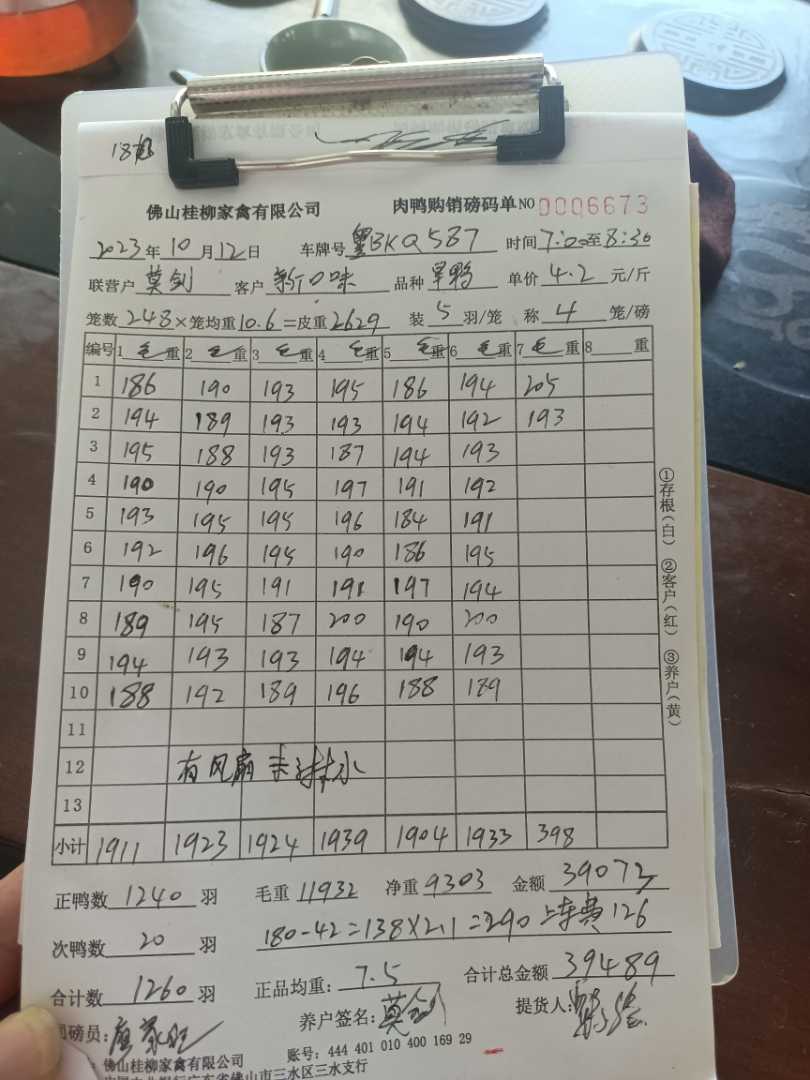 佛山桂柳家禽有限公司 肉鸭购销磅码单 NO 0006673
2023年10月12日 车牌号 BKQ587 时间7:00至8:30
联营户 莫剑 客户 新口味 品种 旱鸭 单价 4.2 元/斤
笼数248×笼均重10.6=皮重2629 装5羽/笼 称4笼/磅
编号 1毛重 2毛重 3毛重 4毛重 5毛重 6毛重 7毛重 8重
1 186 190 193 195 186 194 205
2 194 189 193 193 194 192 193
3 195 188 193 187 194 193
4 190 190 195 197 191 192
5 193 195 195 196 184 191
6 192 196 195 190 186 195
7 190 195 191 191 197 194
8 189 195 187 200 190 200
9 194 193 193 194 194 193
10 188 192 189 196 188 189
11
12 有风扇
13
小计 1911 1923 1924 1939 1904 1933 398
正鸭数1240羽 毛重11932 净重9303 金额39073
次鸭数20羽 180-42=138×2.1=290 上车费126
合计数1260羽 正品均重:7.5 合计总金额39489
磅员: 养户签名:莫剑 提货人:
佛山桂柳家禽有限公司 账号:444 401 010 400 169 29
佛山市三水区三水支行
①存根(白) ②客户(红) ③养户(黄)